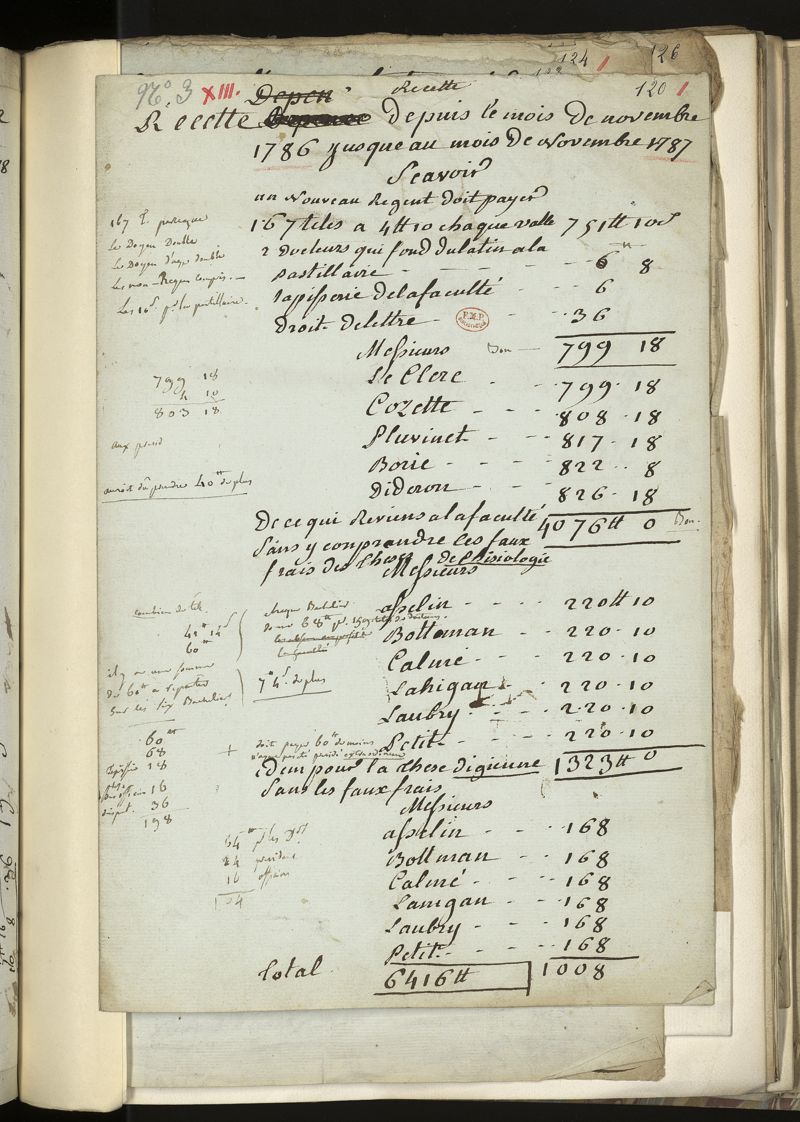 124 1 126
N.° 3 XIII. Depen Recette 120 1
Recette depuis le mois de novembre
1786 yusque au mois de Novembre 1787
Scavoir
un Nouveau Regent doit payer
167 tetes a 4tt 10 chaque valle 751tt 10s
2 docteurs qui fond du latin a la
pastillaire - - - 6tt 8
tapisserie de la faculté - - 6
Droit de lettre - - 36
Messieurs Bon — 799 18
Le Clerc - - 799 18
Cozette - - - 808 18
Pluvinet - - - 817 18
Borie - - - 822 8
Dideron - - - 826 18
De ce qui Reviens a la faculté 4076tt 0 Bon.
Sans y conprendre les faux
frais des Theses de Phisiologie
Messieurs
asselin - - - 220tt 10
Bottoman - - - 220 - 10
Calmé - - - 220 - 10
Lahigan - - 220 - 10
Laubry - - - 220 - 10
Petit - - - 220 - 10
idem pour la These digienne 1323tt 0
Sans les faux frais
Messieurs
asselin - - - 168
Bottman - - - 168
Calmé - - - 168
Lanigan - - 168
Laubry - - - 168
Petit - - - 168
Total 6416tt 1008
167 t. parceque
le Doyen Double
le Doyen d'age double
les non-Regens compris.
Les 16s. pr. la pastillaire.
799 18
4 10
803 18
auroit du prendre 40tt de plus
combien de tt.
41tt 14s
60tt
il y a une somme
de 60tt a repartir
sur les six Bacheliers
chaque Bachelier
7tt 4s. de plus
60tt
68
18
16
36
198
+ doit payer 60tt de moins
64tt
24 president
16 officiers
104